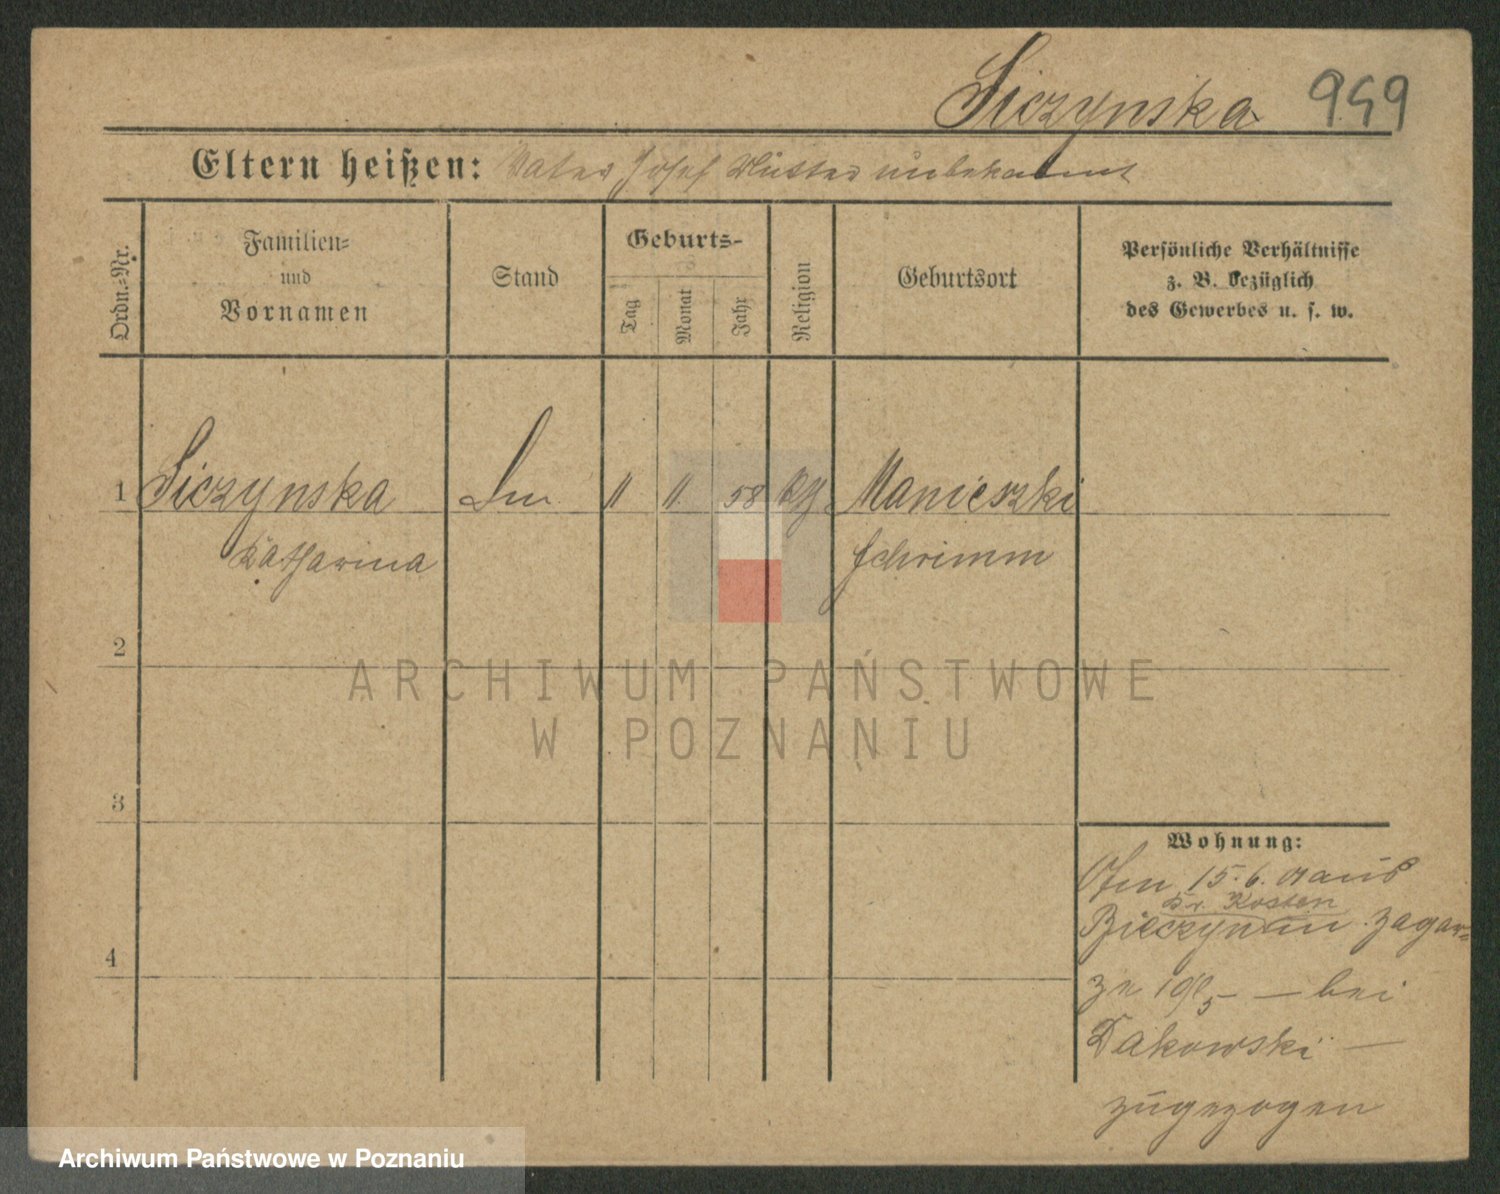 Siczynska 959
Eltern heißen: Vater Josef Mutter unbekannt
Ordn.-Nr.
Familien-
und
Vornamen
Stand
Geburts-
Tag
Monat
Jahr
Religion
Geburtsort
Persönliche Verhältnisse
z. B. bezüglich
des Gewerbes u. s. w.
1 Siczynska 11 11 58 Manieszki
Katharina Schrimm
2
ARCHIWUM PAŃSTWOWE
W POZNANIU
3
Wohnung:
15. 6.
Kr. Kosten
Bieczyn in Zagor-
ze bei
Dakowski
zugezogen
4
Archiwum Państwowe w Poznaniu